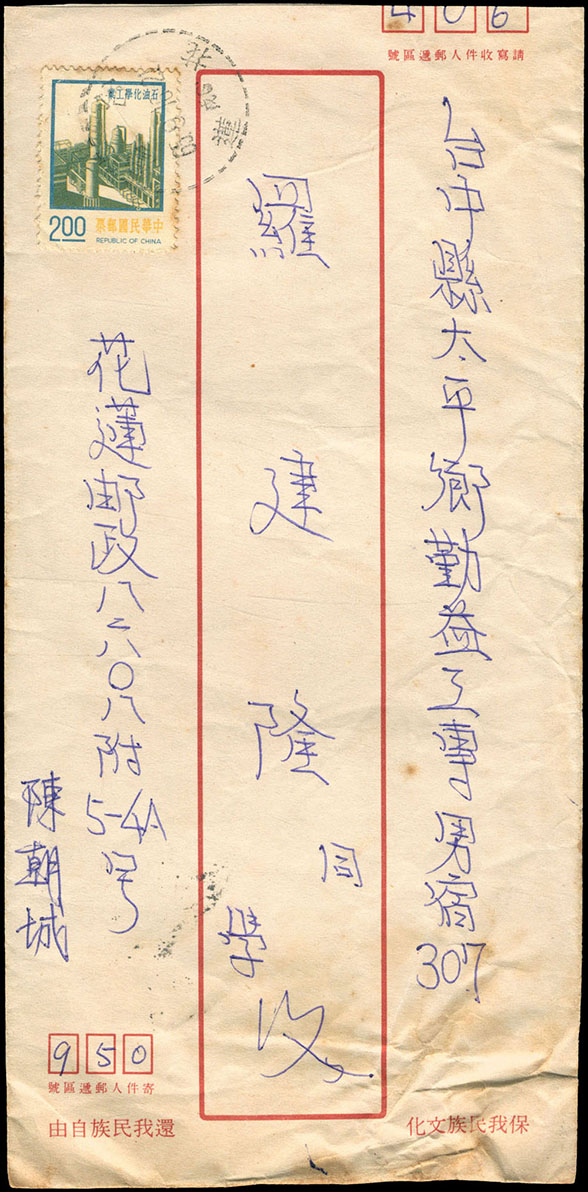 406
請寫收件人郵遞區號
台中縣太平鄉勤益工專男宿307
羅建隆同學收
石油化學工業
中華民國郵票
2.00
REPUBLIC OF CHINA
花蓮郵政八二六〇八附5-4A号
陳朝城
950
寄件人郵遞區號
保我民族文化
還我民族自由